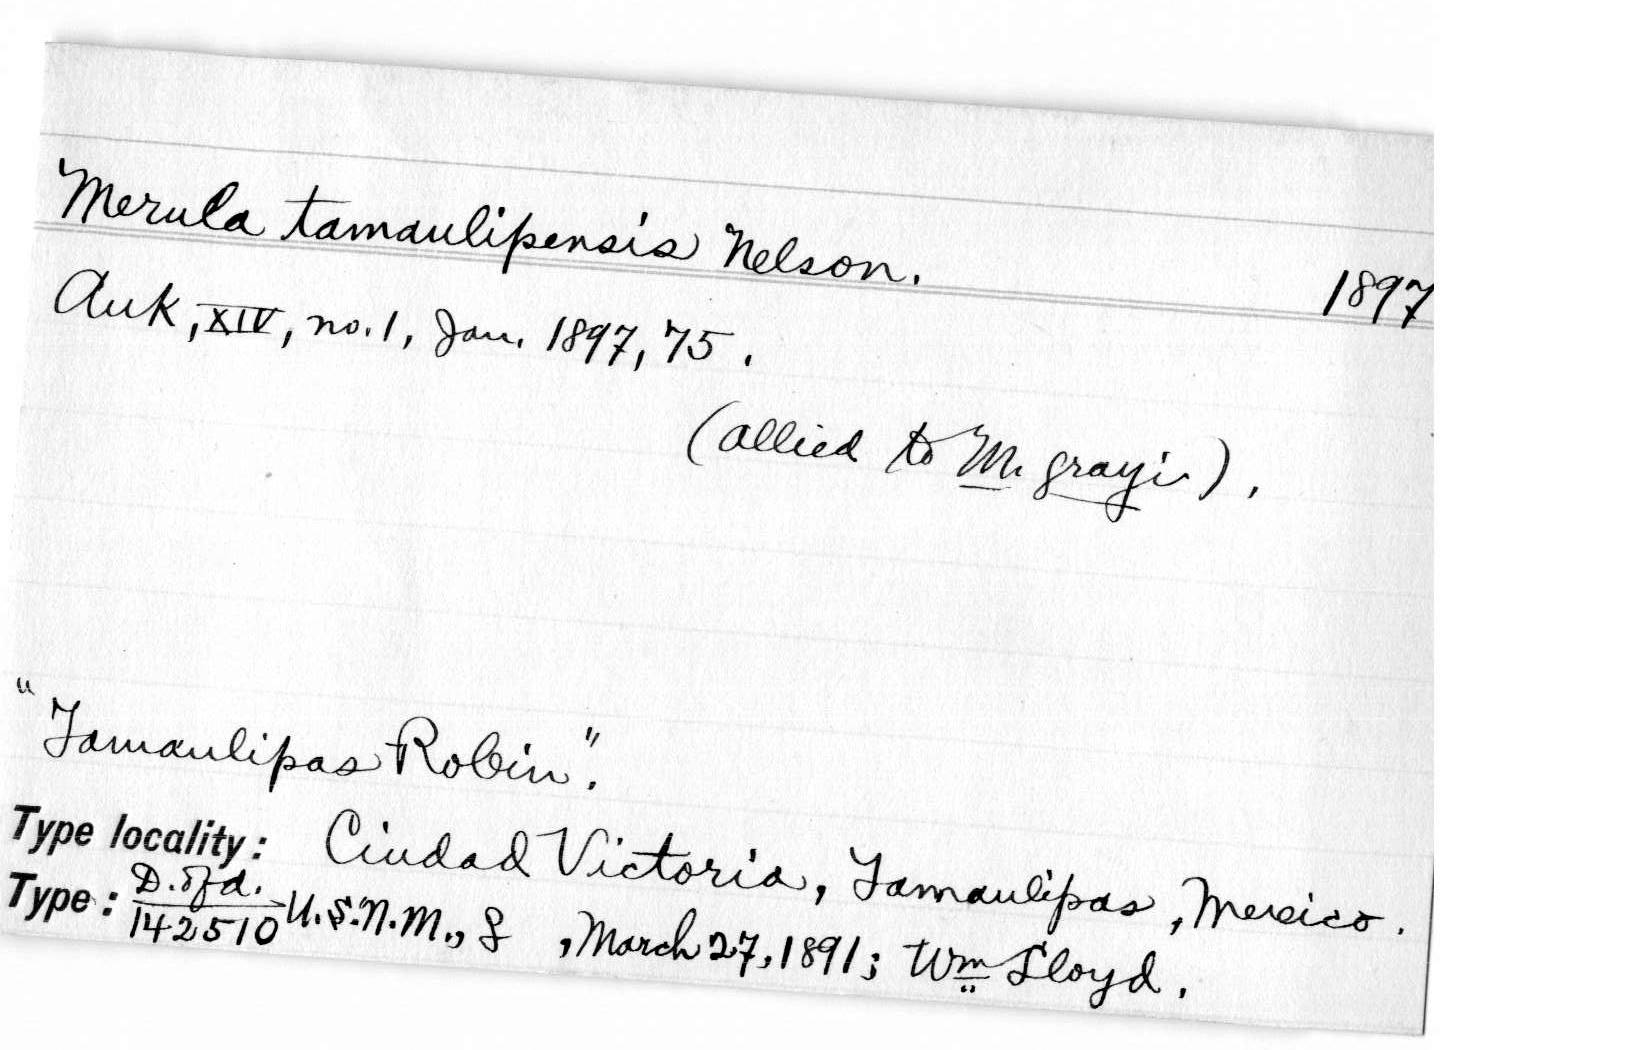 Merula tamaulipensis Nelson.
1897
Auk, XIV, no. 1, Jan. 1897, 75.
(allied to M. grayi).
"Tamaulipas Robin".
Type locality: Ciudad Victoria, Tamaulipas, Mexico.
Type: D. of A. 142510 U.S.N.M., , March 27, 1891; Wm Lloyd.